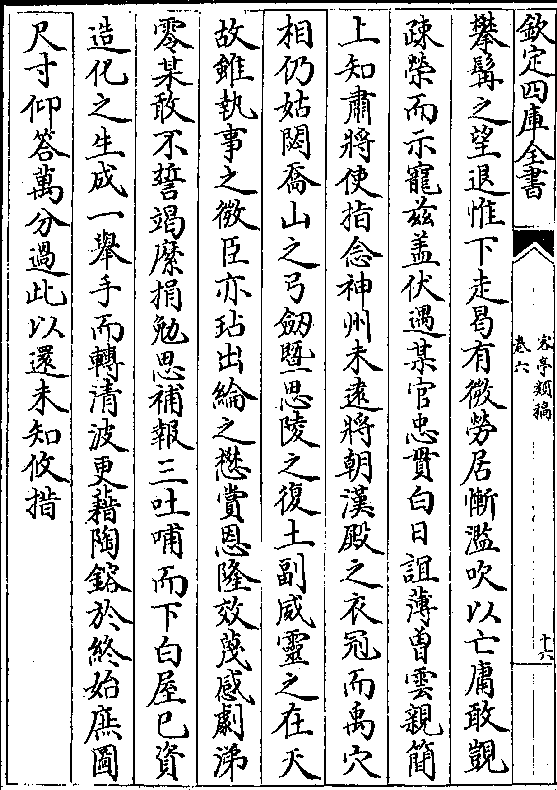 欽定四庫全書
客亭類稿
卷六
十六
攀髯之望退惟下走曷有微勞居慚濫吹以亡庸敢覬
疎榮而示寵兹盖伏遇某官忠貫白日誼薄曾雲親簡
上知肅將使指念神州未遠將朝漢殿之衣冠而禹穴
相仍姑閟喬山之弓劒曁思陵之復土副威靈之在天
故雖執事之微臣亦玷出綸之懋賞恩隆效蔑感劇涕
零某敢不誓竭縻捐勉思補報三吐哺而下白屋已資
造化之生成一舉手而轉清波更藉陶鎔於終始庶圖
尺寸仰答萬分過此以還未知攸措